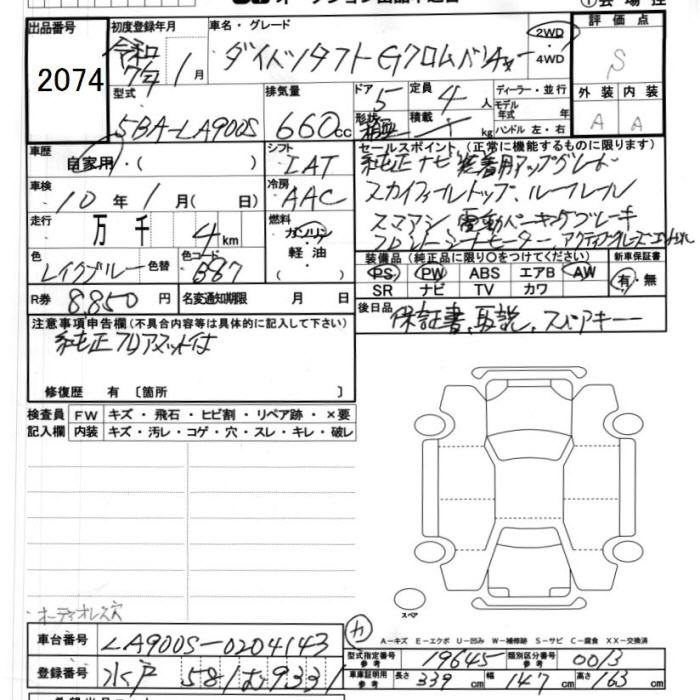 出品番号
2074
初度登録年月
令和
7年 1月
車名・グレード
ダイハツタフト Gクロムベンチャー
2WD
4WD
評価点
S
型式
5BA-LA900S
排気量
660cc
ドア 5
形状
定員 4人
積載 kg
ディーラー・並行
モデル
年式 年
ハンドル 左・右
外装 内装
A A
車歴
自家用・( )
シフト
IAT
セールスポイント (正常に機能するものに限ります)
純正ナビ装着用アップグレード
スカイフィールトップ、ルーフレール
スマアシ 電動パーキングブレーキ
フロントシートヒーター、
車検
10年 1月 ( 日)
冷房
AAC
走行
万 千 4km
燃料
ガソリン
軽油
色
レイクブルー 色替
色コード
B87
装備品 (純正品に限り○をつけてください)
PS PW ABS エアB AW
SR ナビ TV カワ
新車保証書
有・無
R券 8,850円
名変通知期限 月 日
後日品
保証書、取説、スペアキー
注意事項申告欄 (不具合内容等は具体的に記入して下さい)
純正フロアマット付
修復歴 有 〔箇所 〕
検査員
記入欄
FW キズ・飛石・ヒビ割・リペア跡・×要
内装 キズ・汚レ・コゲ・穴・スレ・キレ・破レ
スペア
オーディオレス穴
カ
A-キズ E-エクボ U-凹み W-補修跡 S-サビ C-腐食 XX-交換済
車台番号 LA900S-0204143
型式指定番号
参考
19645
類別区分番号
参考
0013
登録番号 水戸 581む9331
車庫証明用
参考
長さ 339cm 幅 147cm 高さ 163cm